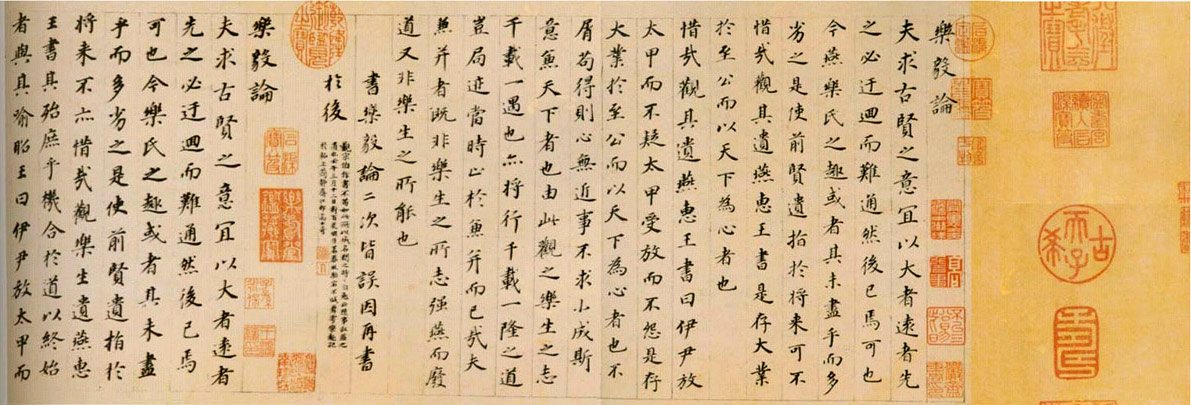 古希天子
樂毅論
夫求古賢之意宜以大者遠者先
之必迂迴而難通然後已焉可也
今燕樂氏之趣或者其未盡乎而多
劣之是使前賢遺指於将来可不
惜哉觀其遺燕惠王書是存大業
於至公而以天下為心者也
惜哉觀其遺燕惠王書曰伊尹放
太甲而不疑太甲受放而不怨是存
大業於至公而以天下為心者也不
屑苟得則心無近事不求小成斯
意兼天下者也由此觀之樂生之志
千載一遇也亦将行千載一隆之道
豈局迹當時止於兼并而已哉夫
兼并者既非樂生之所志强燕而廢
道又非樂生之所能也
書樂毅論二次皆誤因再書
於後
樂毅論
夫求古賢之意宜以大者遠者
先之必迂迴而難通然後已焉
可也今樂氏之趣或者其未盡
乎而多劣之是使前賢遺指於
将来不亦惜哉觀樂生遺燕惠
王書其殆庶乎機合於道以終始
者與其喻昭王曰伊尹放太甲而